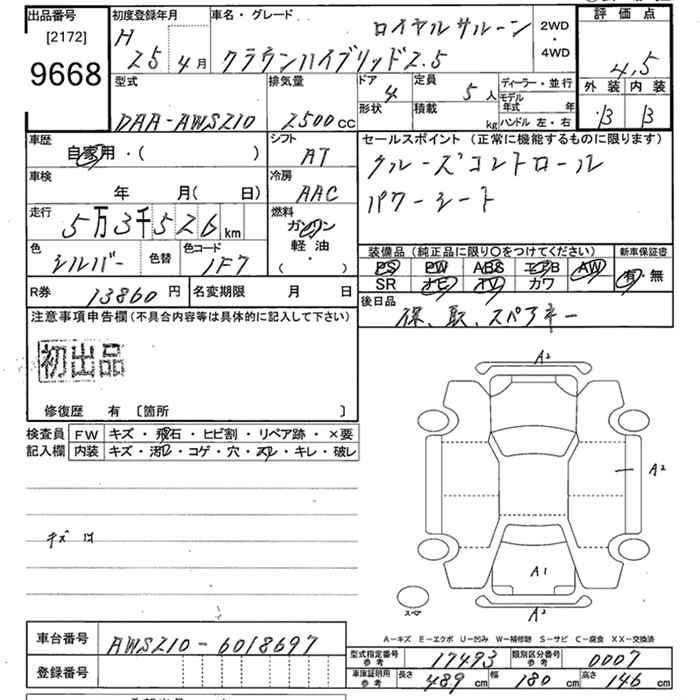 出品番号 初度登録年月 車名・グレード 評価点
[2172]
9668
H 25 4月
クラウンハイブリッド2.5 ロイヤルサルーン
2WD
・
4WD
4,5
外装 内装
B B
型式 排気量 ドア 定員 ディーラー・並行
DAA-AWS210 2500cc 4 5人
モデル年式 年
形状 積載 kg ハンドル 左・右
車歴 シフト セールスポイント(正常に機能するものに限ります)
自家用・( ) AT クルーズコントロール
車検 冷房
年 月(日) AAC パワーシート
走行 燃料
5万3千526km ガソリン
軽油
・
( )
色 色替 色コード
シルバー 1F7
装備品(純正品に限り○をつけてください) 新車保証書
PS PW ABS エアB AW 有・無
SR ナビ TV カワ
R券 13860円 名変期限 月 日
後日品
保、取、スペアキー
注意事項申告欄(不具合内容等は具体的に記入して下さい)
初出品
修復歴 有 〔箇所 〕
検査員 FW キズ・飛石・ヒビ割・リペア跡・×要
記入欄 内装 キズ・汚レ・コゲ・穴・スレ・キレ・破レ
キズ
A2
A2
A1
A2
スペア
A-キズ E-エクボ U-凹み W-補修跡 S-サビ C-腐食 XX-交換済
車台番号 AWS210-6018697
登録番号
型式指定番号 参考 17493 類別区分番号 参考 0007
車庫証明用 参考 長さ 489cm 幅 180cm 高さ 146cm